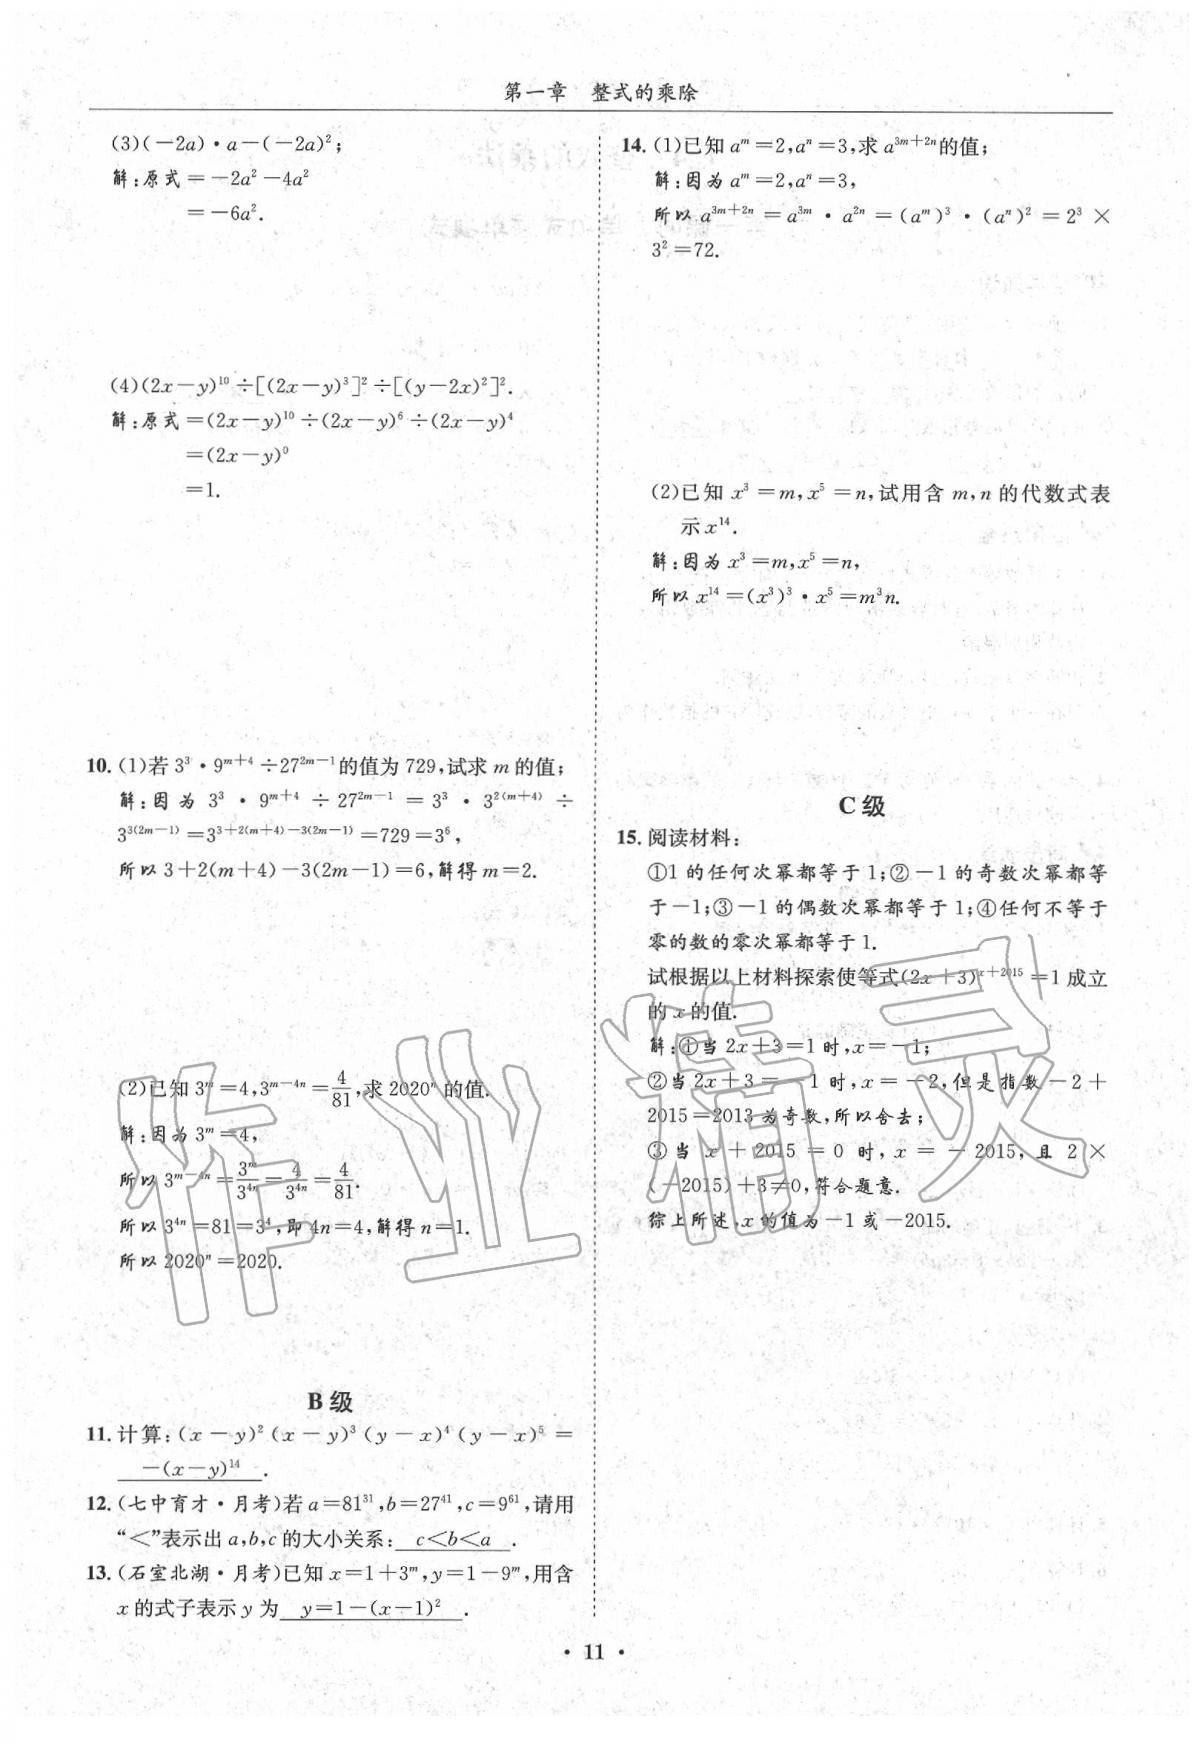 第一章 整式的乘除
(3)(-2a)·a-(-2a)²;
解:原式=-2a²-4a²
=-6a².
(4)(2x-y)¹⁰÷[(2x-y)³]²÷[(y-2x)²]².
解:原式=(2x-y)¹⁰÷(2x-y)⁶÷(2x-y)⁴
=(2x-y)⁰
=1.
10.(1)若3³·9ᵐ⁺⁴÷27²ᵐ⁻¹的值为729,试求m的值;
解:因为 3³·9ᵐ⁺⁴÷27²ᵐ⁻¹=3³·3²⁽ᵐ⁺⁴⁾÷
3³⁽²ᵐ⁻¹⁾=3³⁺²⁽ᵐ⁺⁴⁾⁻³⁽²ᵐ⁻¹⁾=729=3⁶,
所以3+2(m+4)-3(2m-1)=6,解得m=2.
(2)已知3ᵐ=4,3ᵐ⁻⁴ⁿ=4/81,求2020ⁿ的值.
解:因为3ᵐ=4,
所以3ᵐ⁻⁴ⁿ=3ᵐ/3⁴ⁿ=4/3⁴ⁿ=4/81.
所以3⁴ⁿ=81=3⁴,即4n=4,解得n=1.
所以2020ⁿ=2020.
B级
11.计算:(x-y)²(x-y)³(y-x)⁴(y-x)⁵=
-(x-y)¹⁴.
12.(七中育才·月考)若a=81³¹,b=27⁴¹,c=9⁶¹,请用
“<”表示出a,b,c的大小关系: c<b<a .
13.(石室北湖·月考)已知x=1+3ᵐ,y=1-9ᵐ,用含
x的式子表示y为 y=1-(x-1)² .
14.(1)已知aᵐ=2,aⁿ=3,求a³ᵐ⁺²ⁿ的值;
解:因为aᵐ=2,aⁿ=3,
所以a³ᵐ⁺²ⁿ=a³ᵐ·a²ⁿ=(aᵐ)³·(aⁿ)²=2³×
3²=72.
(2)已知x³=m,x⁵=n,试用含m,n的代数式表
示x¹⁴.
解:因为x³=m,x⁵=n,
所以x¹⁴=(x³)³·x⁵=m³n.
C级
15.阅读材料:
①1的任何次幂都等于1;②-1的奇数次幂都等
于-1;③-1的偶数次幂都等于1;④任何不等于
零的数的零次幂都等于1.
试根据以上材料探索使等式(2x+3)ˣ⁺²⁰¹⁵=1成立
的x的值.
解:①当2x+3=1时,x=-1;
②当2x+3=-1时,x=-2,但是指数-2+
2015=2013为奇数,所以舍去;
③当x+2015=0时,x=-2015,且2×
(-2015)+3≠0,符合题意.
综上所述,x的值为-1或-2015.
·11·
作业精灵